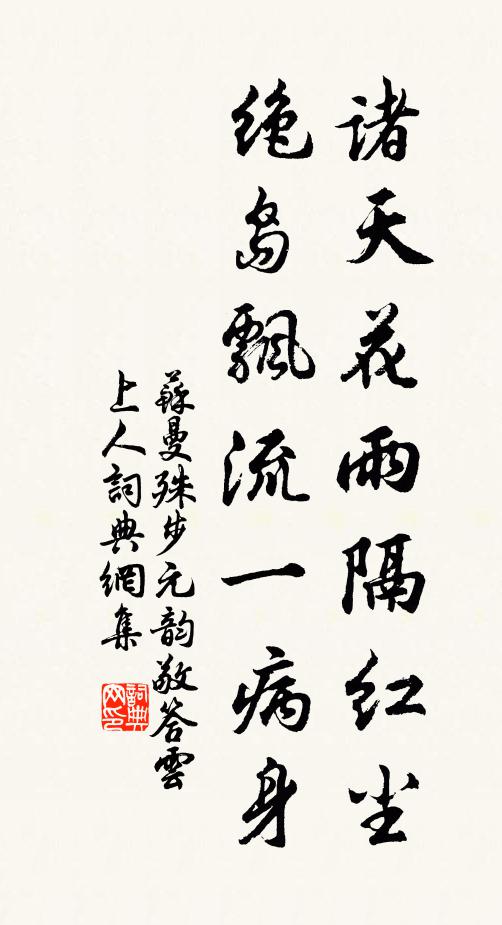 諸天花雨隔红尘
绝岛飄流一病身
蘇曼殊步元韵敬答雲
上人詞典網集
詞典网印